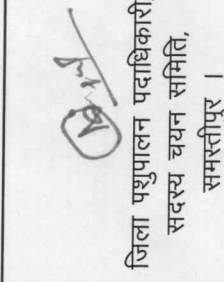 जिला पशुपालन पदाधिकारी,
सदस्य चयन समिति,
समस्तीपुर ।